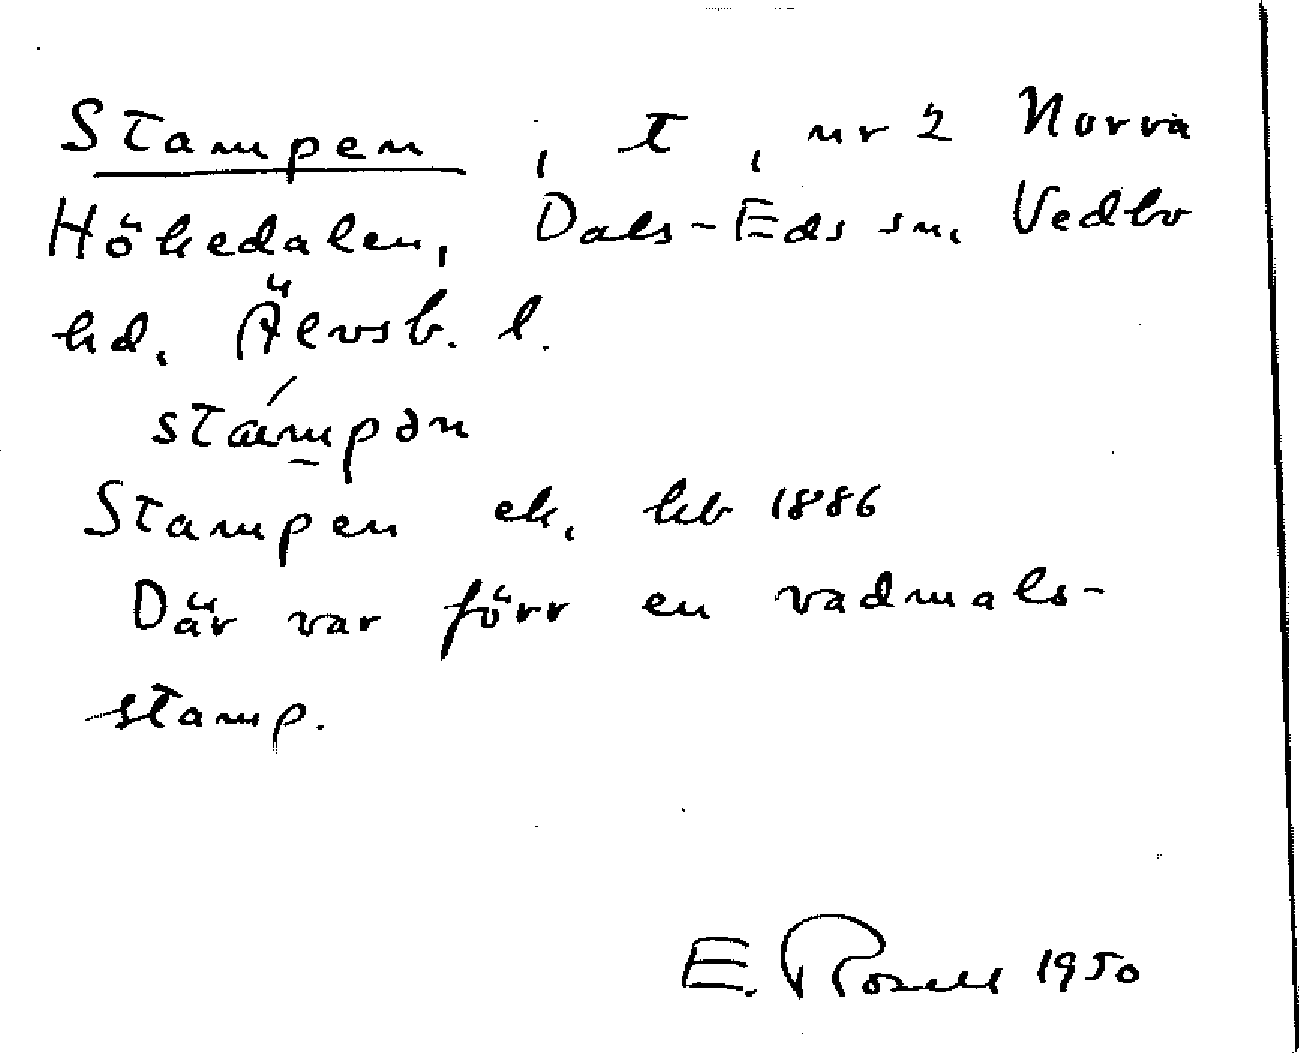 Stampen, t, nr 2 Norra
Hökedalen, Dals-Eds sn, Vedbo
hd, Älvsb. l.
stámpən
Stampen ek, kb 1886
Där var förr en vadmals-
stamp.
E. Rosell 1950